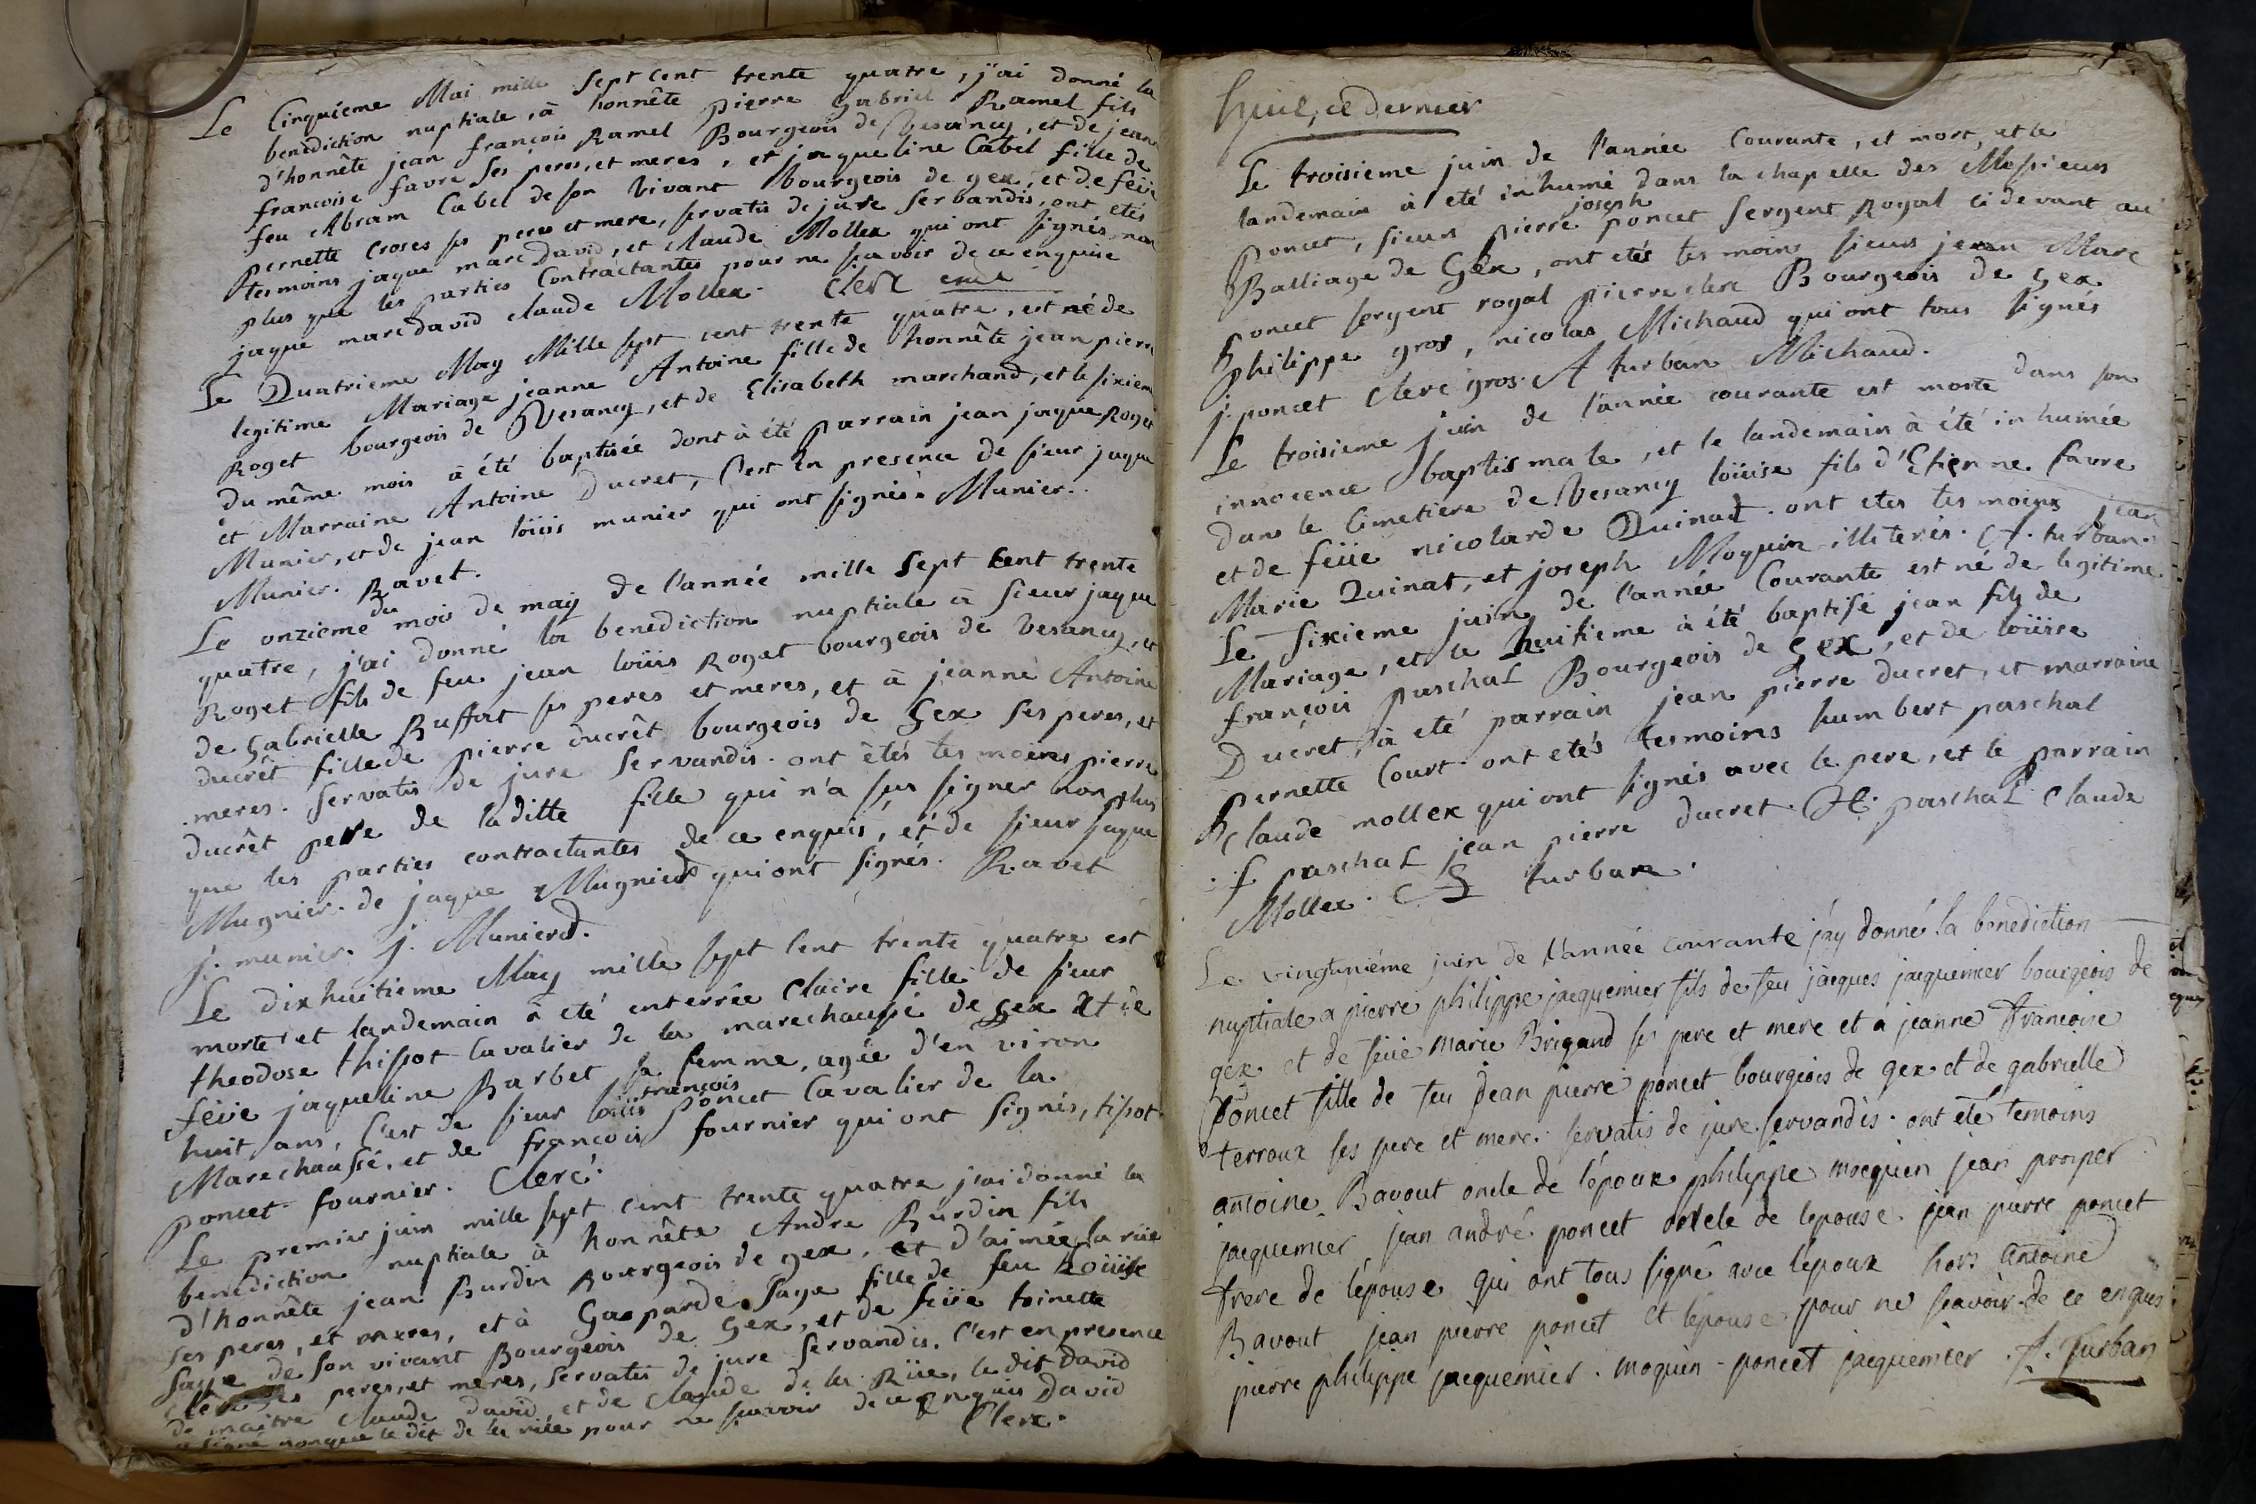 Le Cinquiéme Mai mille Sept Cent trente quatre, j'ai donné la
benediction nuptiale, à honnête pierre Gabriel Ramel fils
d'honnête jean françois Ramel Bourgeois de Vesancy, et de jeanne
francoise favre ses peres, et meres, et jaqueline Cabel fille de
feu Abram Cabel de son vivant bourgeois de gex, et de feüe
pernette Croses ses peres et mere, servatis de jure serbandis, ont etés
tesmoins jaque marc david, et claude Mollex qui ont signés non
plus que les parties Contractantes pour ne sçavoir de ce enquise
jaque marc david claude Mollex. Clerc curé
Le Quatrieme May Mille sept cent trente quatre, est né de
legitime Mariage jeanne Antoine fille de honnête jean pierre
Roget bourgeois de Vesancy, et de Elisabeth marchand, et le sixieme
du même mois à été baptisée dont à été parrain jean jaque Roget
et Marraine Antoine Ducret, C'est En presence de sieur jaque
Munier, et de jean loüis munier qui ont signés. Munier.
Munier. Ravet.
Le onzieme du mois de may de l'année mille sept Cent trente
quatre, j'ai donné la benediction nuptiale à sieur jaque
Roget fils de feu jean loüis Roget bourgeois de Vesancy, et
de Gabrielle Buffat ses peres et meres, et à jeanne Antoine
ducrêt fille de pierre ducrêt bourgeois de Gex ses peres, et
meres. servatis de jure servandis. ont êtés tesmoins pierre
ducrêt pere de laditte fille qui n'a sus signer non plus
que les parties contractantes de ce enquis, et de sieur jaque
Mugnier. de jaque Mugnier qui ont signés. Ravet
j. munier. j. Munierd.
Le dixhuitieme May mille sept Cent trente quatre est
morte et landemain à eté enterrée Claire fille de sieur
theodose thissot Cavalier de la marechaussé de Gex et de
feüe jaqueline Barbet sa femme, agée d'en viron
huit ans, C'est de sieur loüis françois poncet Cavalier de la
Marechaussé, et de françois fournier qui ont signés, tisot
poncet fournier. Clerc.
Le premier juin mille sept cent trente quatre j'ai donné la
benediction nuptiale à honnête Andre Burdin fils
d'honnête jean Burdin Bourgeois de gex, et d'aimée la rüe
ses peres, et meres, et à Gasparde Sage fille de feu Loüise
Sage de son vivant Bourgeois de Gex, et de feüe toinette
peres, et meres, servatis de jure servandis. C'est en presence
de maitre claude david et de claude de la Rüe, le dit David
a signé nonque le dit de la rüe pour ne sçavoir de ce enquis David
Clerc.
ce dernier
Le troisieme juin de l'année Courante, et mort, et le
landemain à eté inhumé dans la chapelle des Messieurs
poncet, sieur pierre joseph poncet sergent Royal ci devant au
Balliage de Gex, ont etés tesmoins sieurs jean Marc
poncet sergent royal pierre clerc Bourgeois de gex
philippe gros, nicolas Michaud qui ont tous signés
j. poncet Clerc gros. A turban Michaud.
Le troisieme juin de l'année courante est morte dans son
innocence baptismale, et le landemain à été inhumée
dans le Cimetiere de Vesancy loüise fils d'Etienne favre
et de feüe nicolarde Quinat. ont etes tesmoins jean
Marie Quinat, et joseph Moquin illiterés. A. turban.
Le Sixieme juin de l'année Courante est né de legitime
Mariage, et le huitieme à été baptisé jean fils de
françois paschal Bourgeois de Gex, et de loüise
Ducret, à eté parrain jean pierre ducret, et marraine
pernette Court. ont etés tesmoins humbert paschal
Claude mollex qui ont signés avec le pere, et le parrain
f. paschal jean pierre ducret. H. paschal Claude
Mollex. turban.
Le vingtuniéme juin de l'année courante j'ay donné la benediction
nuptiale a pierre philippe jacquemier fils de feu jacques jacquemier bourgeois de
gex et de feüe Marie Brigand ses pere et mere et a jeanne francoise
poncet fille de feu Jean pierre poncet bourgeois de gex et de gabrielle
terroux ses pere et mere. servatis de jure servandis. ont été temoins
antoine Bavout oncle de l'époux philippe mocquin jean prosper
jacquemier jean andré poncet oncle de l'epouse. jean pierre poncet
frere de l'épouse qui ont tous signé avec l'epoux hors antoine
Bavout jean pierre poncet et l'epouse pour ne sçavoir de ce enquis
pierre philippe jacquemier. moquin - poncet jacquemier. A. Turban